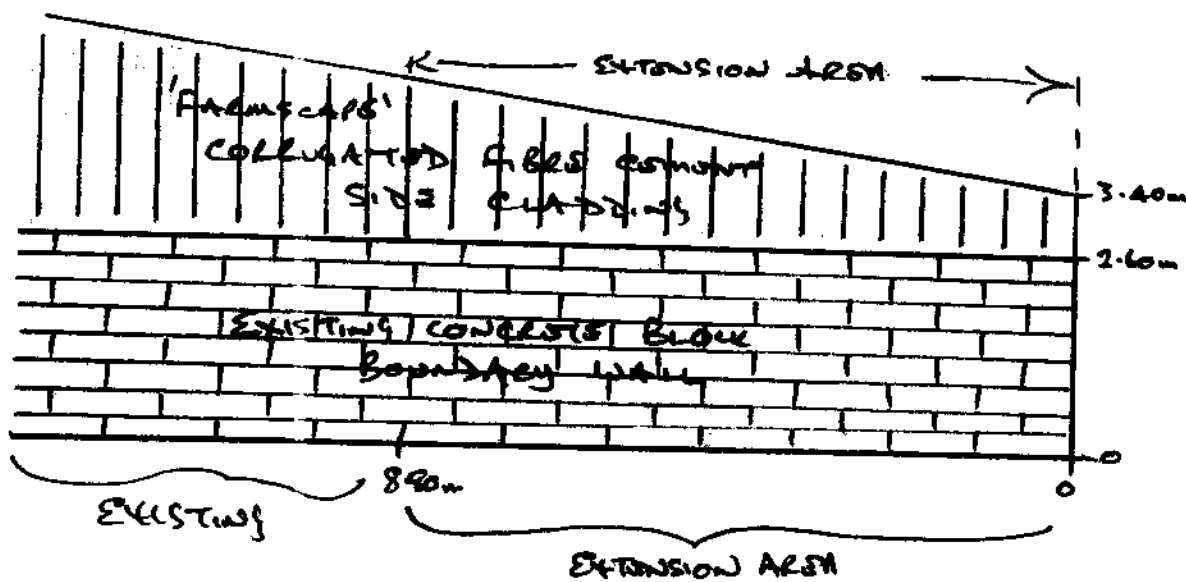 EXTENSION AREA
'FARMSCAPE'
CORRUGATED FIBRE CEMENT
SIDE CLADDING
3.40m
2.60m
EXISTING CONCRETE BLOCK
BOUNDARY WALL
0
890m
0
EXISTING
EXTENSION AREA